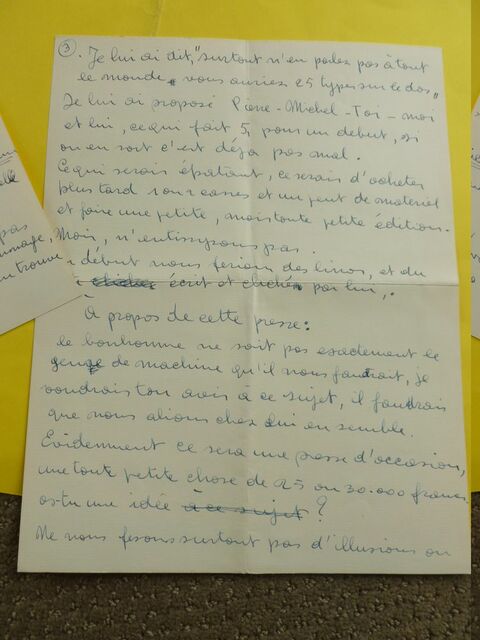 ③. Je lui ai dit, "surtout n'en parlez pas à tout
le monde, vous auriez 25 types sur le dos"
Je lui ai proposé Pierre - Michel - Toi - moi
et lui, ce qui fait 5, pour un début, si
on en sort c'est déja pas mal.
Ce qui serais épatant, ce serais d'acheter
plus tard 1 ou 2 casses et un peut de materiel
et faire une petite, mais toute petite édition.
Mais, n'entissipons pas.
début nous ferions des linos, et du
écrit et cliché par lui,.
À propos de cette presse:
le bonhomme ne sait pas exactement le
genre de machine qu'il nous faudrait, je
voudrais ton avis a ce sujet, il faudrais
que nous alions chez lui en semble.
Evidemment ce sera une presse d'occasion,
une toute petite chose de 25 ou 30.000 francs
as-tu une idée à ce sujet ?
Ne nous fesons surtout pas d'illusions on
pas
mmage,
trouv